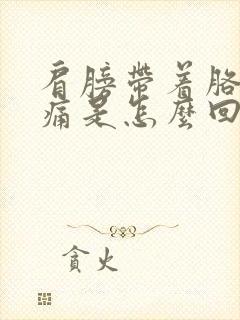 肩膀帶着胳
痛是怎麼回
貪火